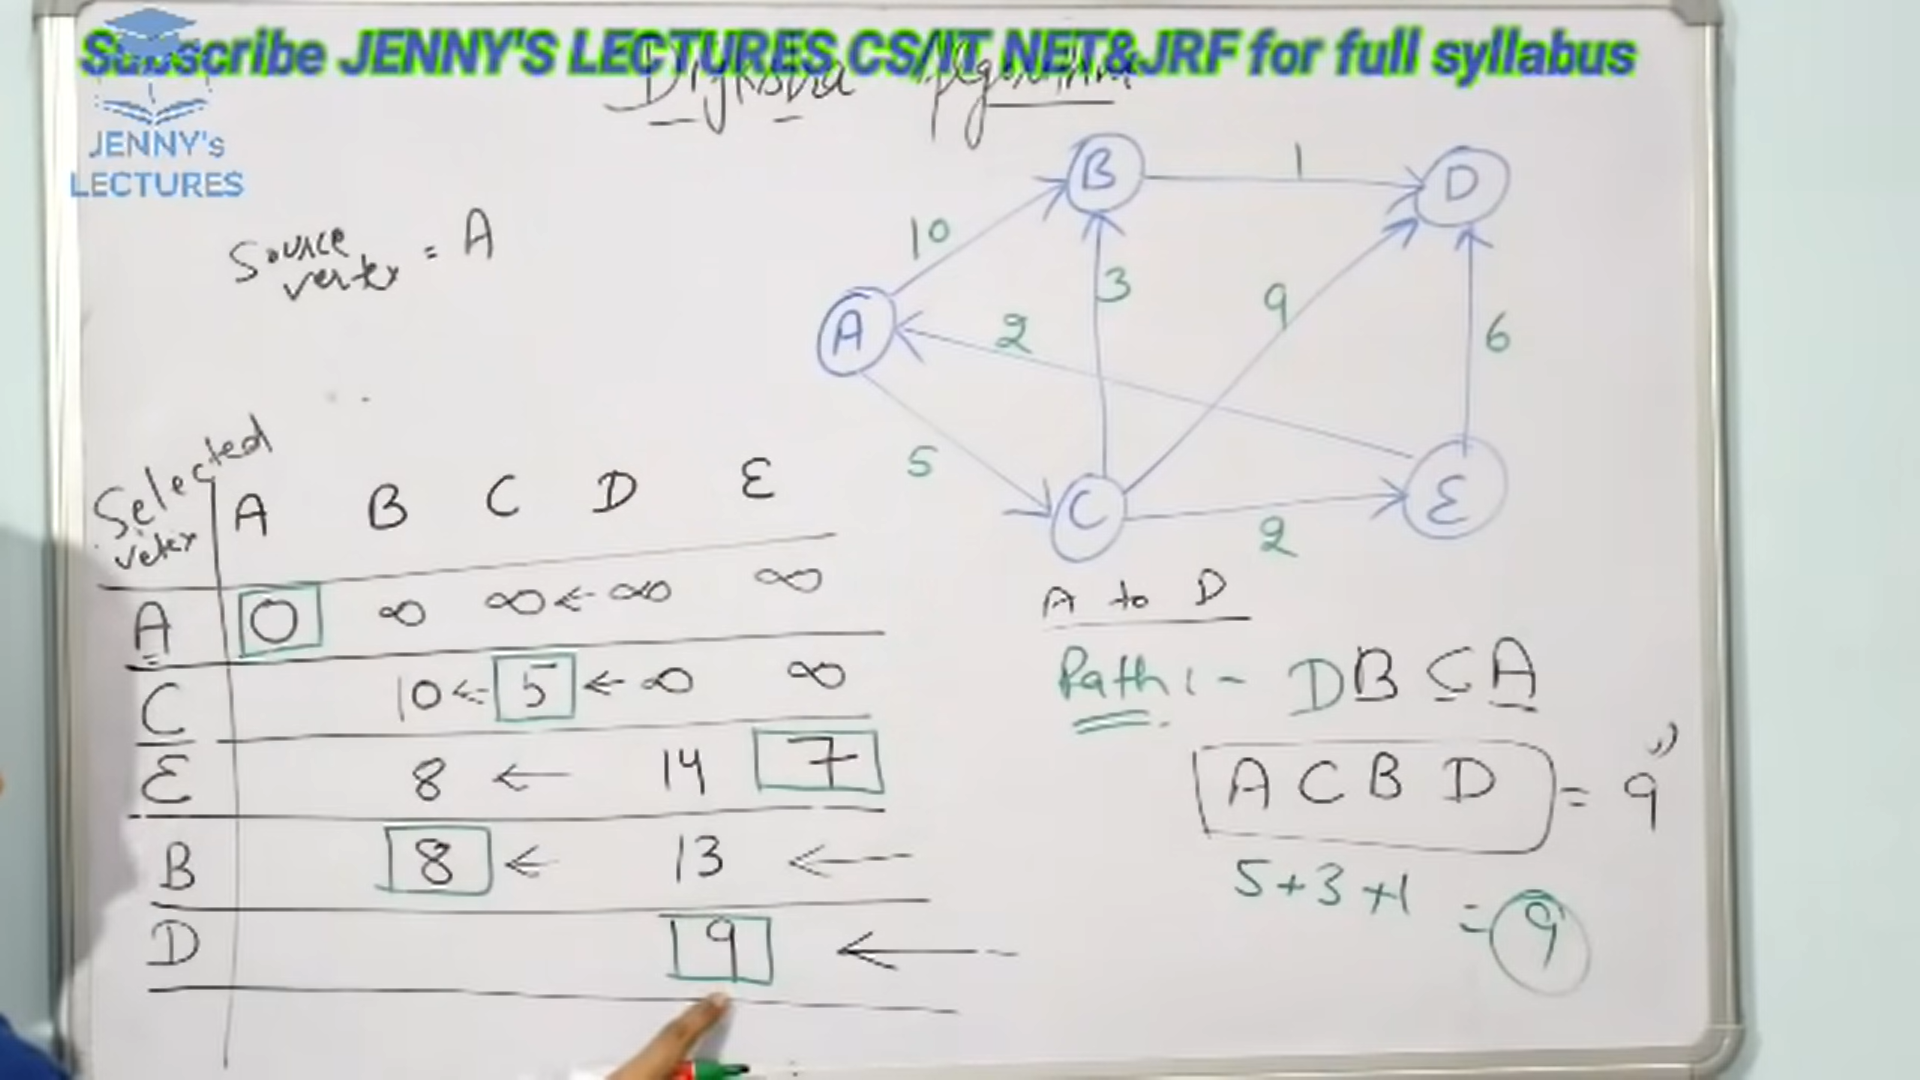 Subscribe JENNY'S LECTURES CS/IT NET&JRF for full syllabus
Dijkstra Algorithm
JENNY's
LECTURES
Source
vertex = A
B 1 D
10
3 9
A 2 6
5
C 2 E
Selected
vetex A B C D E
A 0 ∞ ∞ ← ∞ ∞
C 10 ← 5 ← ∞ ∞
E 8 ← 14 7
B 8 ← 13 ←
D 9 ←
A to D
Path :- D B C A
A C B D = 9
5+3+1 = 9